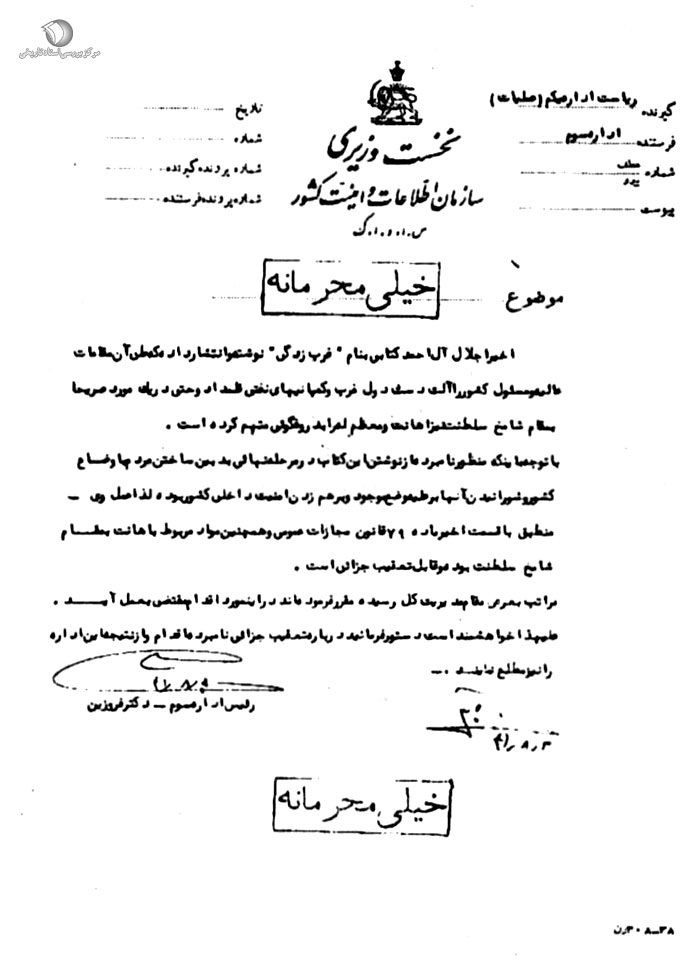 مرکز بررسی اسناد تاریخی
گیرنده ریاست اداره یکم (عملیات)
فرستنده اداره سوم
شماره عطف
پیرو
پیوست
نخست وزیری
سازمان اطلاعات و امنیت کشور
س.ا.و.ا.ک
تاریخ
شماره
شماره پرونده گیرنده
شماره پرونده فرستنده
خیلی محرمانه
موضوع
اخیرا جلال آل احمد کتابی بنام "غرب زدگی" نوشته و انتشار داده که طی آن مقامات
عالیه و مسئول کشور را آلت دست دول غرب و کمپانیهای نفتی قلمداد و حتی در یک مورد صریحا
بمقام شامخ سلطنت نیز اهانت و معظم له را بدروغگوئی متهم کرده است .
با توجه باینکه منظور نامبرده از نوشتن این کتاب در مرحله نهائی بدبین ساختن مردم باوضاع
کشور و شورانیدن آنها بر علیه وضع موجود و برهم زدن امنیت داخلی کشور بوده لذا عمل وی -
منطبق با قسمت اخیر ماده ۷۹ قانون مجازات عمومی و همچنین مواد مربوط باهانت بمقام
شامخ سلطنت بوده و قابل تعقیب جزائی است .
مراتب بعرض مقام مدیریت کل رسیده مقرر فرمودهاند در اینمورد اقدام مقتضی بعمل آید .
علیهذا خواهشمند است دستور فرمائید درباره تعقیب جزائی نامبرده اقدام و از نتیجه این اداره
را نیز مطلع نمایند .-
رئیس اداره سوم - دکتر فروزین
۴۱/۸/۳
خیلی محرمانه